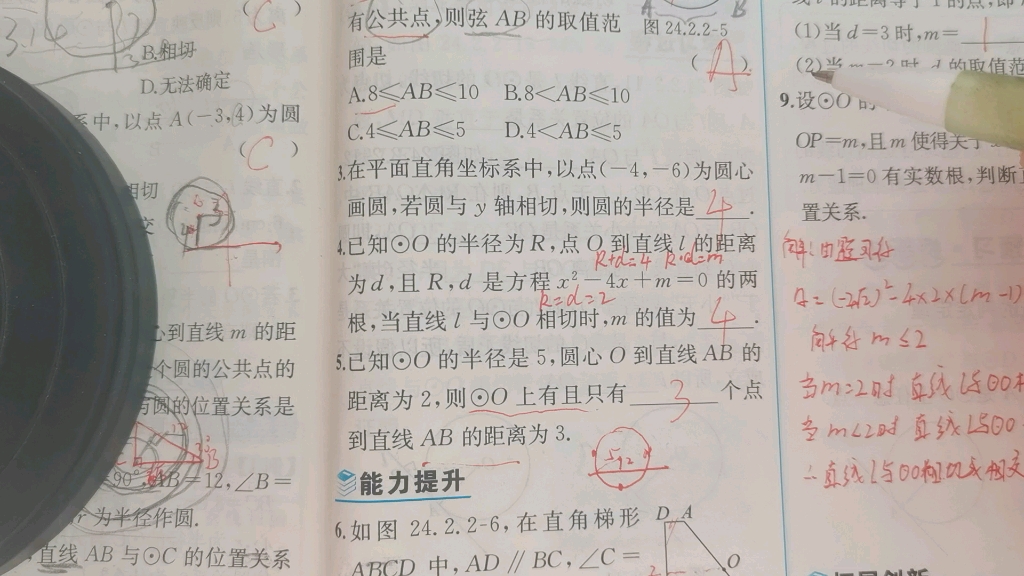 (C)
B.相切
D.无法确定
系中,以点A(-3,4)为圆
(C)
相切
心到直线 m 的距
个圆的公共点的
与圆的位置关系是
=90° AB=12,∠B=
为半径作圆.
直线 AB 与⊙C 的位置关系
有公共点,则弦 AB 的取值范
围是
(A)
A B
图 24.2.2-5
A.8≤AB≤10 B.8<AB≤10
C.4≤AB≤5 D.4<AB≤5
3.在平面直角坐标系中,以点(-4,-6)为圆心
画圆,若圆与 y 轴相切,则圆的半径是 4 .
4.已知⊙O 的半径为 R,点 O 到直线 l 的距离
R+d=4 R·d=m
为 d,且 R,d 是方程 x²-4x+m=0 的两
R=d=2
根,当直线 l 与⊙O 相切时,m 的值为 4 .
5.已知⊙O 的半径是 5,圆心 O 到直线 AB 的
距离为 2,则⊙O 上有且只有 3 个点
到直线 AB 的距离为 3.
5 2
能力提升
6.如图 24.2.2-6,在直角梯形
ABCD 中,AD∥BC,∠C=
D A
O
(1)当 d=3 时,m= 1
(2)当 m=2时,d 的取值范
9.设⊙O 的
OP=m,且 m 使得关于
m-1=0 有实数根,判断
置关系.
=(-2√2)²-4×2×(m-1)
解得 m≤2
当m=2时 直线l与⊙O相
当m<2时 直线l与⊙O
∴直线l与⊙O相切或相交